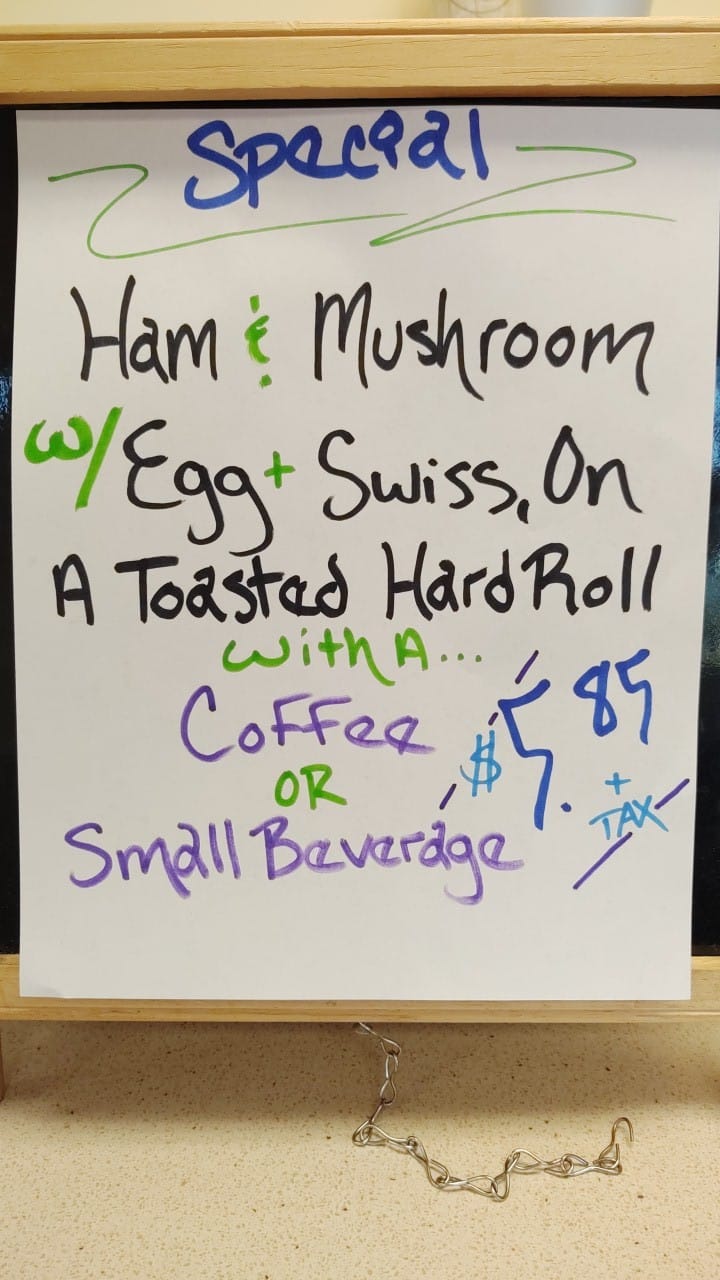 Special
Ham & Mushroom
w/ Egg + Swiss, On
A Toasted Hard Roll
With A...
Coffee
OR
Small Beverage
$5.85
+
TAX